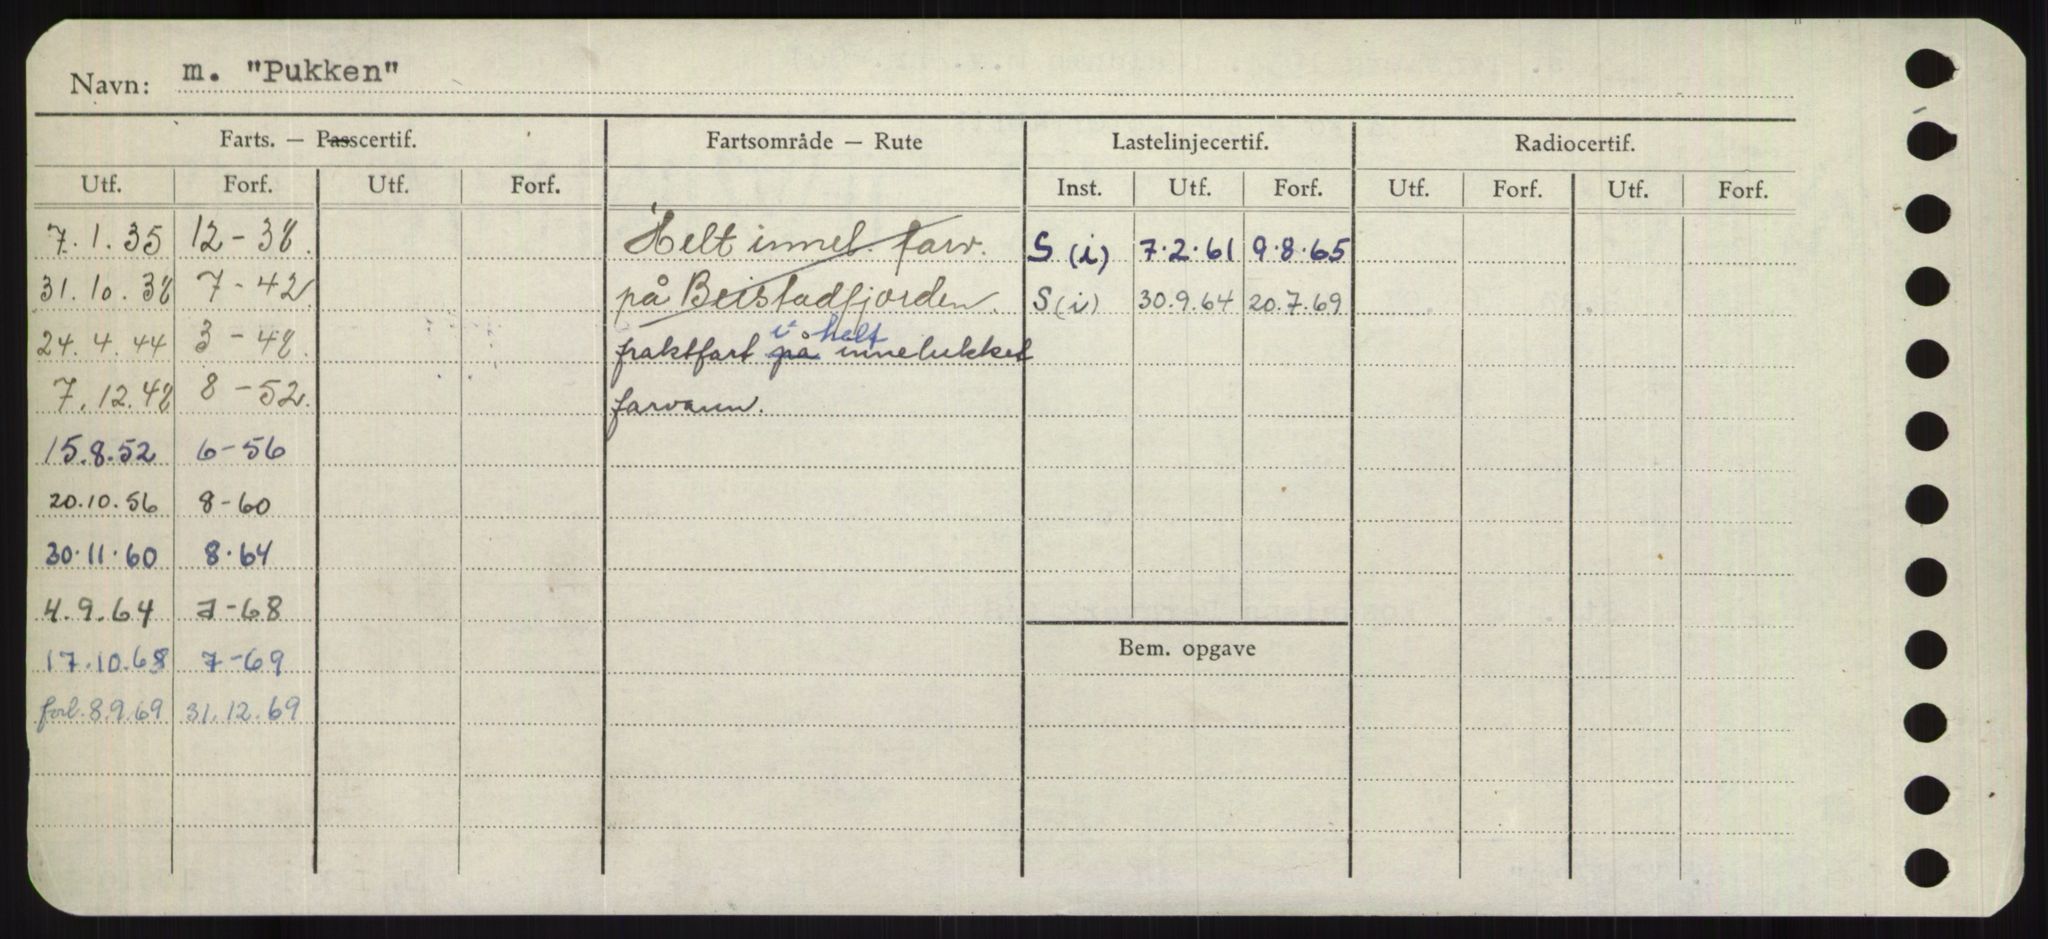 Navn: m. "Pukken"
Farts. — Passcertif. Fartsområde — Rute Lastelinjecertif. Radiocertif.
Utf. Forf. Utf. Forf. Inst. Utf. Forf. Utf. Forf. Utf. Forf.
7.1.35 12-38. Helt innel. farv. S (i) 7.2.61 9.8.65
31.10.38 7-42 på Beistadfjorden. S (i) 30.9.64 20.7.69
i helt
24.4.44 3-48. fraktfart på innelukket
7.12.48 8-52. farvann.
15.8.52 6-56
20.10.56 8-60
30.11.60 8.64
4.9.64 7-68
Bem. opgave
17.10.68 7-69
forl. 8.9.69 31.12.69